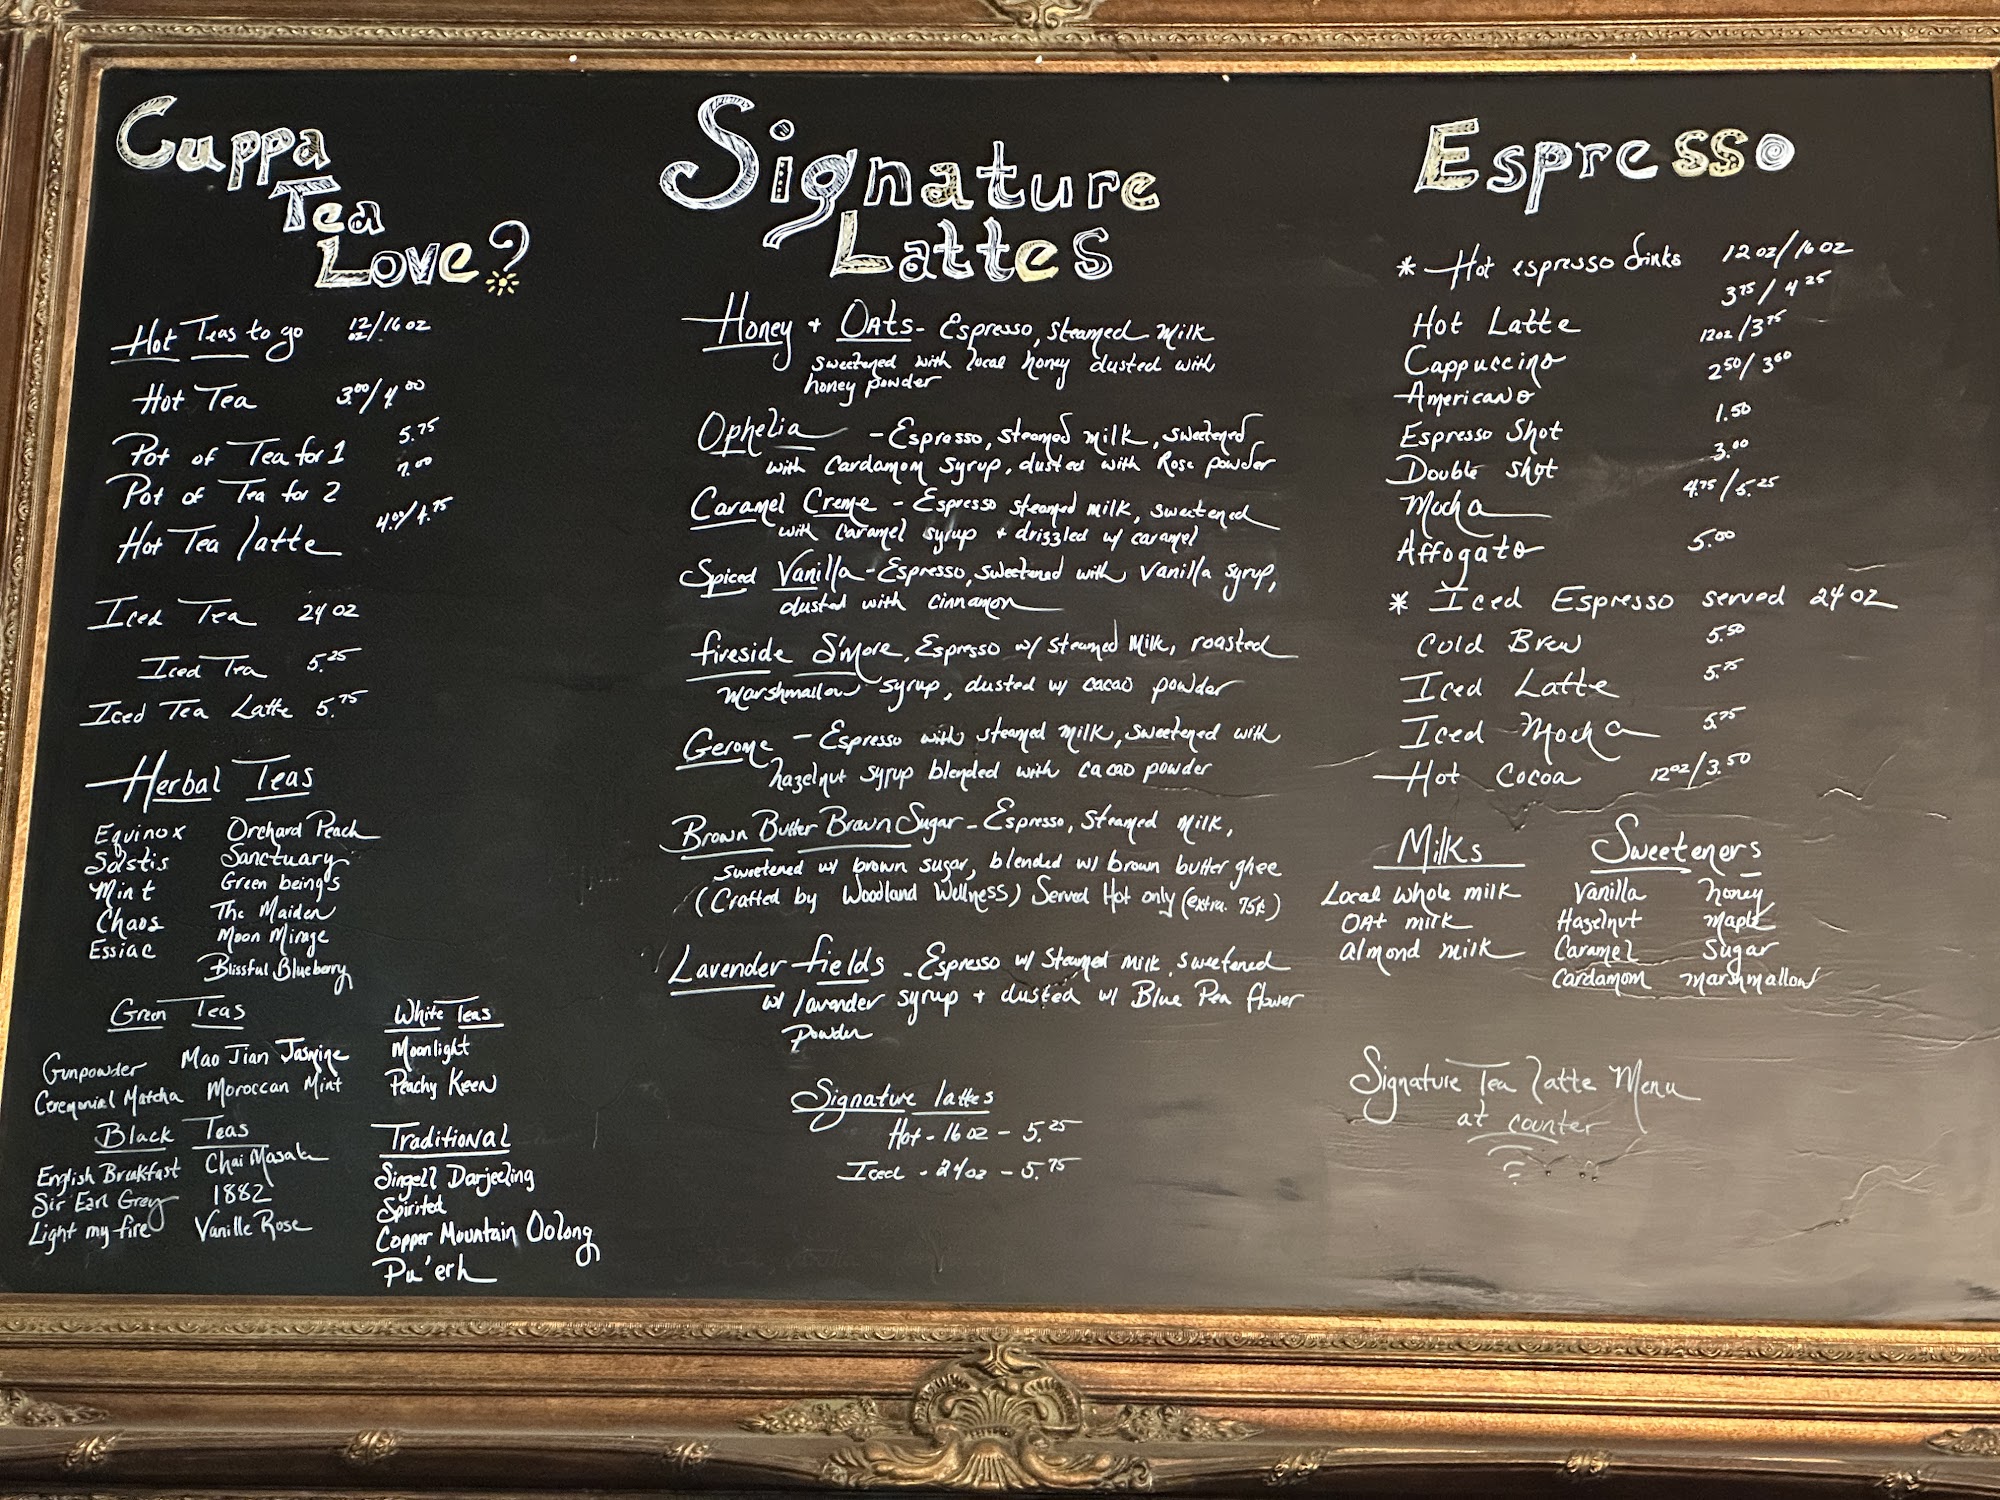 Cuppa
Tea
Love?
Hot Teas to go 12 oz/16 oz
Hot Tea 3.00/4.00
Pot of Tea for 1 5.75
Pot of Tea for 2 7.00
Hot Tea latte 4.00/4.75
Iced Tea 24 oz
Iced Tea 5.25
Iced Tea Latte 5.75
Herbal Teas
Equinox Orchard Peach
Solstis Sanctuary
Mint Green being's
Chaos The Maiden
Essiac Moon Mirage
Blissful Blueberry
Green Teas
Gunpowder Mao Jian Jasmine
Ceremonial Matcha Moroccan Mint
White Teas
Moonlight
Peachy Keen
Black Teas
English Breakfast Chai Masala
Sir Earl Grey 1882
Light my fire Vanille Rose
Traditional
Singell Darjeeling
Spirited
Copper Mountain Oolong
Pu'erh
Signature
Lattes
Honey + Oats - Espresso, steamed milk
sweetened with local honey dusted with
honey powder
Ophelia - Espresso, steamed milk, sweetened
with Cardamom syrup, dusted with Rose powder
Caramel Creme - Espresso steamed milk, sweetened
with caramel syrup + drizzled w/ caramel
Spiced Vanilla - Espresso, sweetened with vanilla syrup,
dusted with cinnamon
Fireside S'More, Espresso w/ steamed milk, roasted
marshmallow syrup, dusted w/ cacao powder
Gerome - Espresso with steamed milk, sweetened with
hazelnut syrup blended with cacao powder
Brown Butter Brown Sugar - Espresso, steamed milk,
sweetened w/ brown sugar, blended w/ brown butter ghee
(Crafted by Woodland Wellness) Served Hot only (extra. 75¢)
Lavender Fields - Espresso w/ steamed milk, sweetened
w/ lavender syrup + dusted w/ Blue Pea flower
Powder
Signature lattes
Hot - 16 oz - 5.25
Iced - 24 oz - 5.75
Espresso
* Hot espresso drinks 12 oz/16 oz
Hot Latte 3.75/4.25
Cappuccino 12oz/3.75
Americano 2.50/3.00
Espresso Shot 1.50
Double shot 3.00
Mocha 4.75/5.25
Affogato 5.00
* Iced Espresso served 24 oz
Cold Brew 5.50
Iced Latte 5.75
Iced Mocha 5.75
Hot Cocoa 12oz/3.50
Milks
Local whole milk
Oat milk
almond milk
Sweeteners
Vanilla honey
Hazelnut Maple
Caramel Sugar
Cardamom marshmallow
Signature Tea latte Menu
at counter